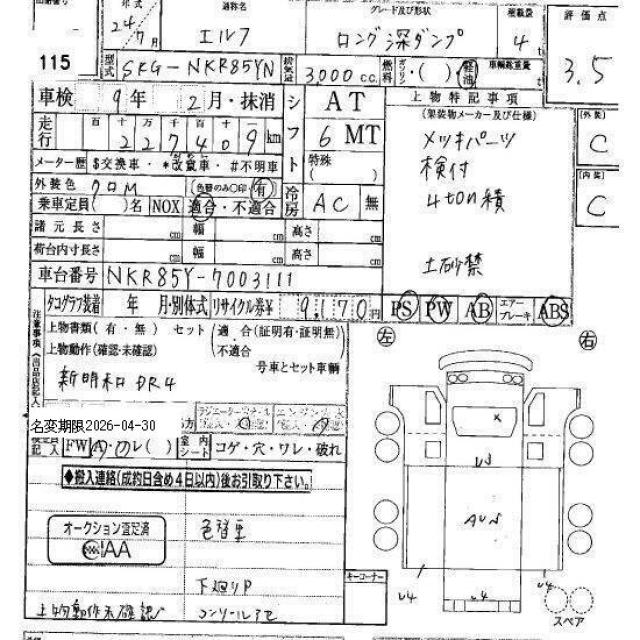 年式 通称名 グレード及び形状 積載量 評価点
24年7月 エルフ ロング 深ダンプ 4t 3.5
115
型式 SKG-NKR85YN 排気量 3,000 c.c. 燃料 ガソリン・( ) 軽油 車輌総重量 t
車検 9年 2月・抹消 シフト AT
6 MT
特殊 ( )
走行 百 十 万 千 百 十 一
227409km
メーター歴 $交換車・*改ざん車・#不明車
外装色 クロM (色替のみ○印 有) 冷房 AC 無
乗車定員( )名 NOX 適合・不適合
諸元長さ cm 幅 cm 高さ cm
荷台内寸長さ cm 幅 cm 高さ cm
車台番号 NKR85Y-7003111
上物特記事項
(架装物メーカー及び仕様)
メッキパーツ
検付
4ton積
土砂禁
(外装) C
(内装) C
タコグラフ装着 年 月・別体式 リサイクル券¥ 9,170円 PS PW AB エアーブレーキ ABS
注意事項(出品店記入)
上物書類(有・無) セット (適合(証明有・証明無)
上物動作(確認・未確認) (不適合
号車とセット車輌
新明和 DR4
左 右
名変期限2026-04-30
FW 室内シート コゲ・穴・ワレ・破れ
◆搬入連絡(成約日含め4日以内)後お引取り下さい。
オークション査定済
AA
色替至
下廻りP
上物動作未確認
コンソールコゲ
キーコーナー
U3
AUN
U4 U4 U4
スペア